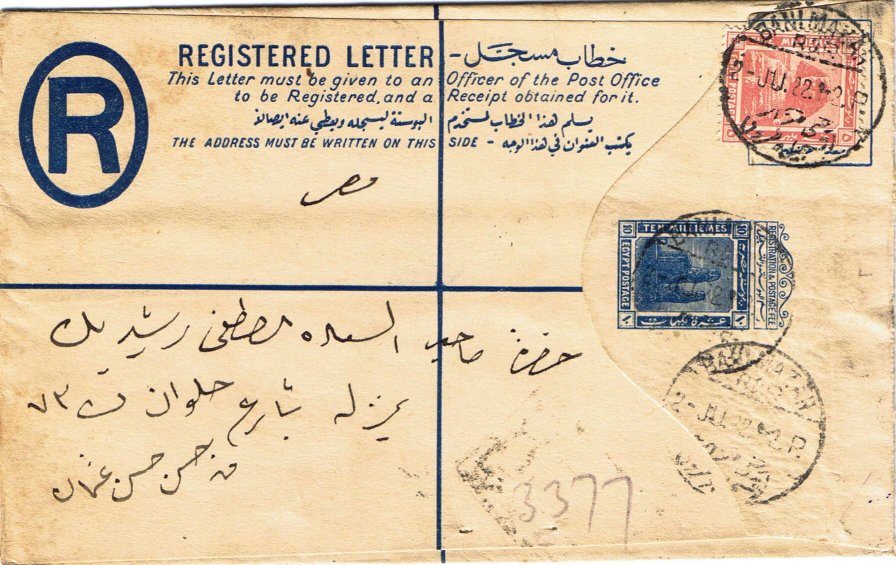 R
REGISTERED LETTER - خطاب مسجل
This Letter must be given to an Officer of the Post Office
to be Registered, and a Receipt obtained for it.
يسلم هذا الخطاب لمستخدم البوستة ليسجله ويعطي عنه ايصالا
THE ADDRESS MUST BE WRITTEN ON THIS SIDE - يكتب العنوان في هذا الوجه
BANI MAZAR
2-JU. 22
مصر
EGYPT POSTAGE
TEN MILLIEMES
10 10
EGYPT POSTAGE
REGISTRATION & POSTAGE FEE
عشرة مليمات
١٠
حضرة صاحب السعاده مصطفى رشيد بك
بمنزله بشارع حلوان ٧٣
من حسن حسن عثمان
BANI MAZAR
2-JU. 22
3377